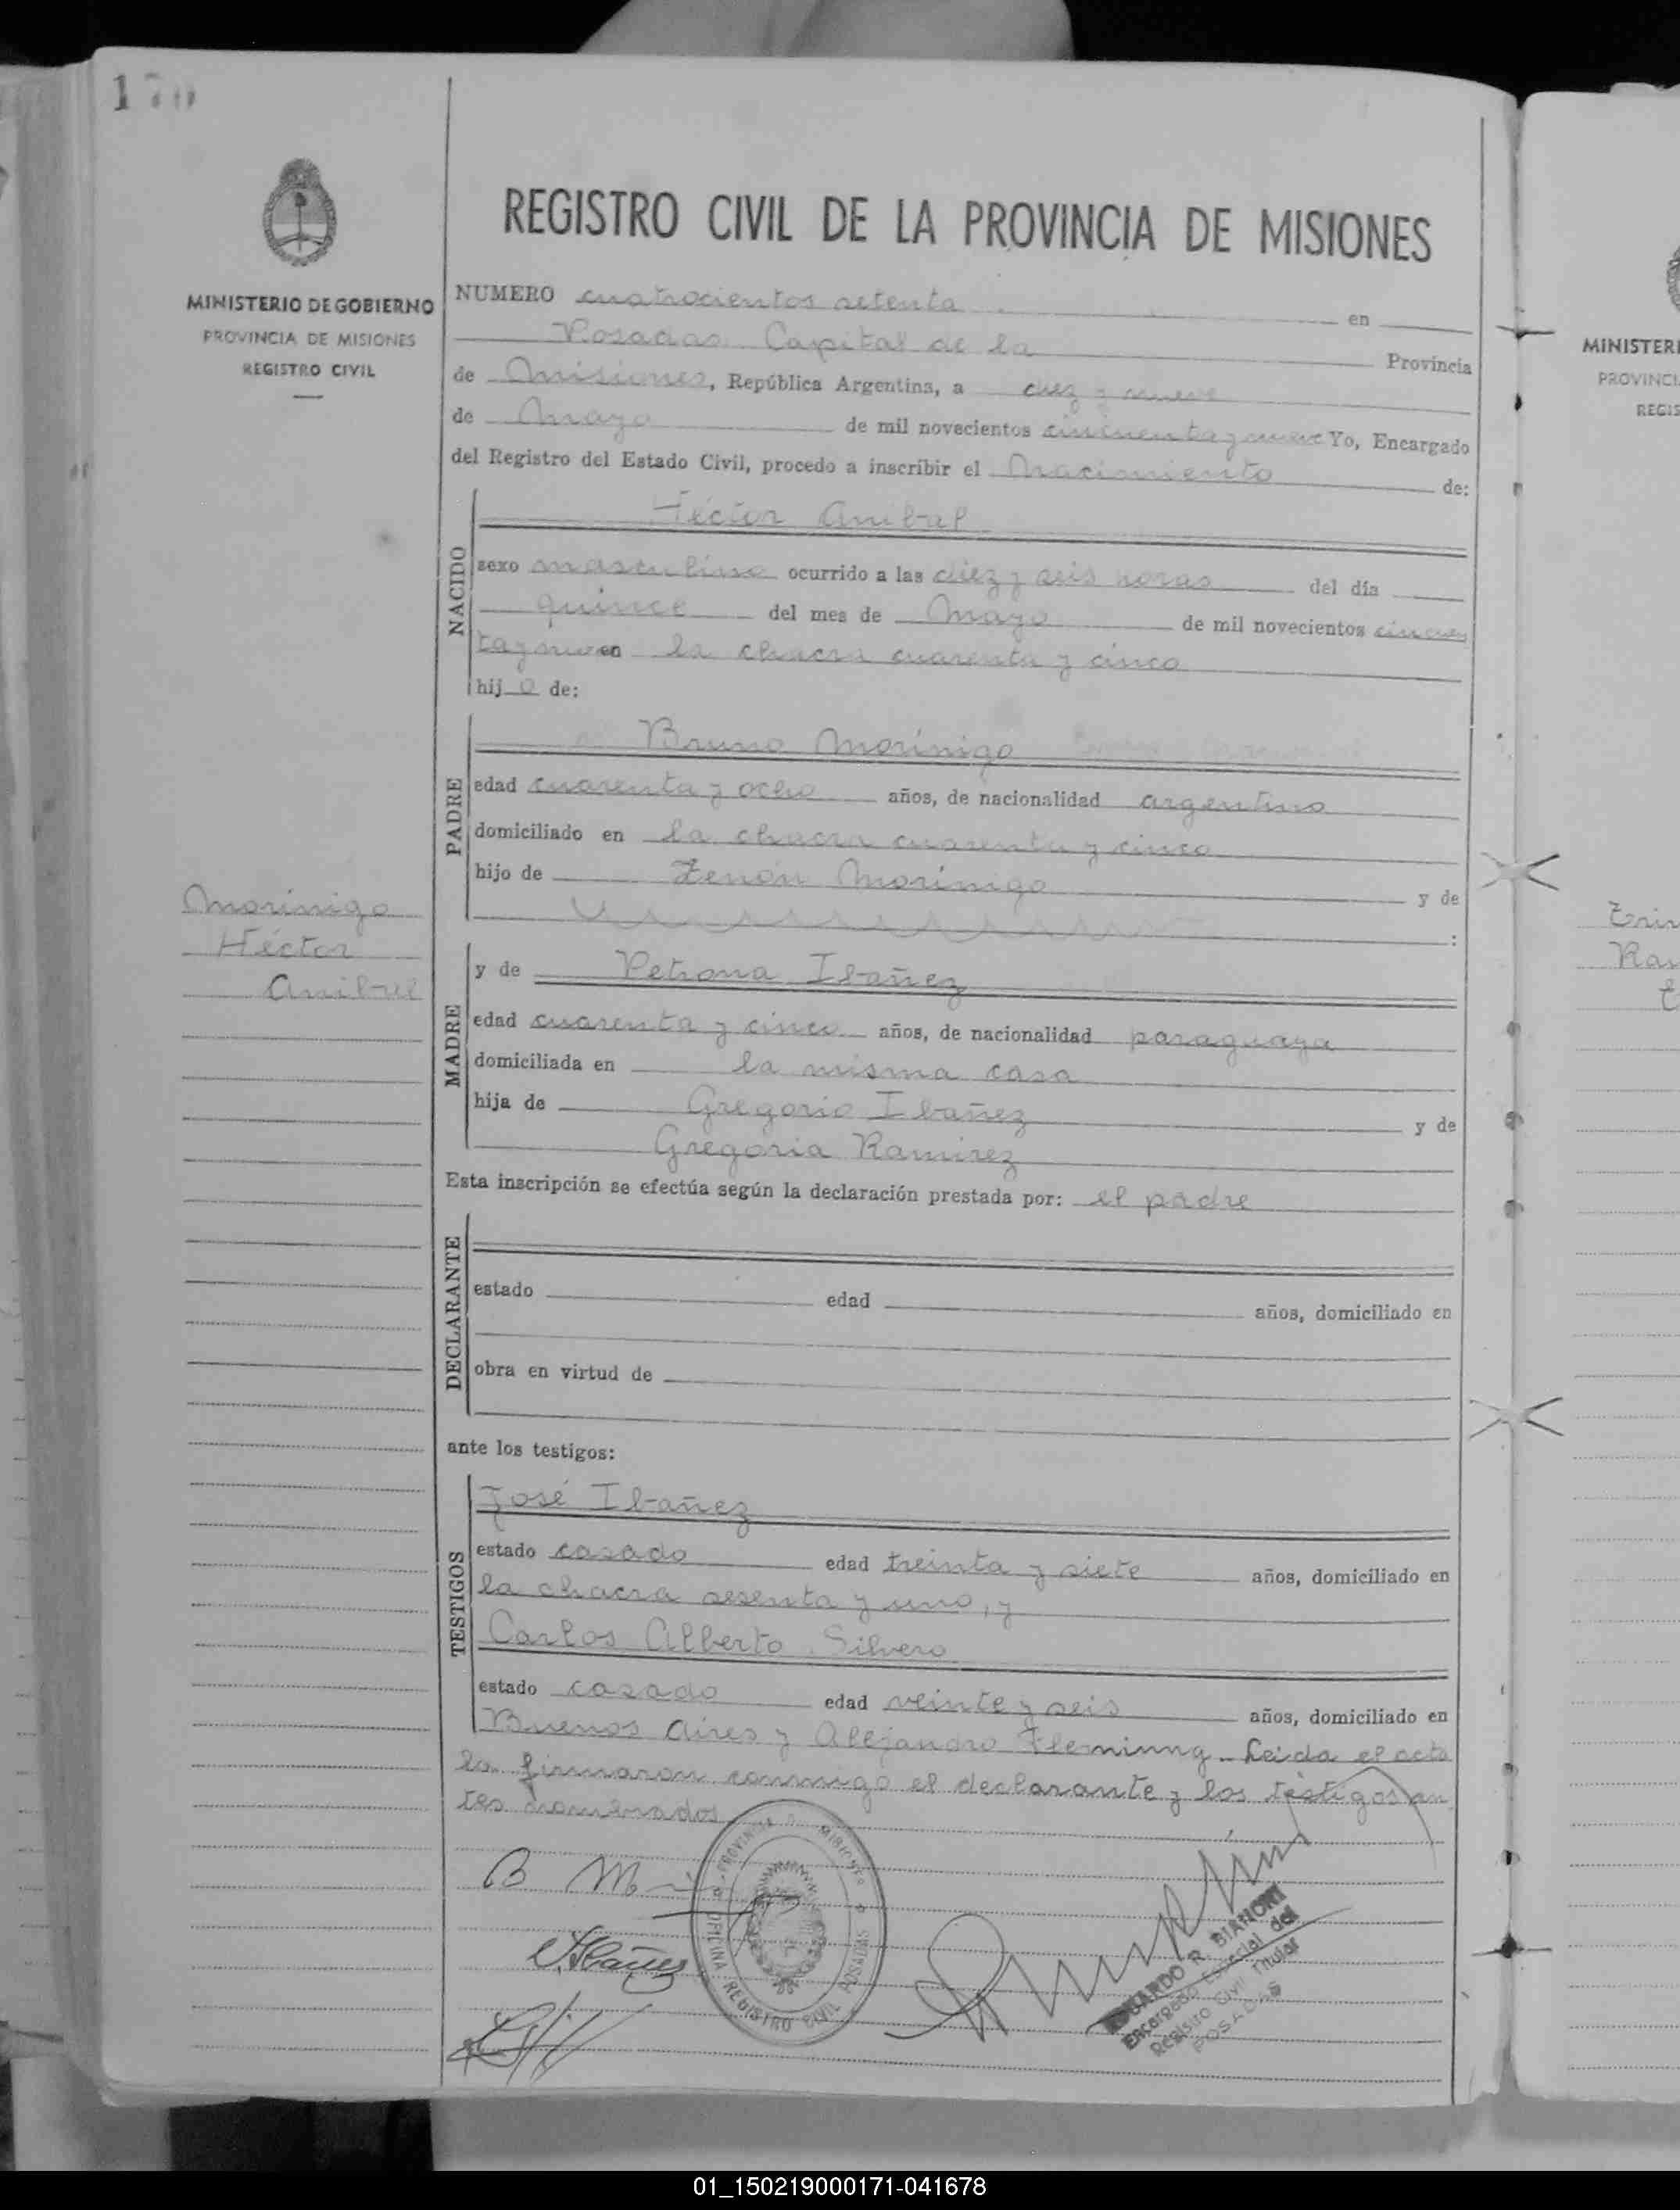 170
MINISTERIO DE GOBIERNO
PROVINCIA DE MISIONES
REGISTRO CIVIL
Morinigo
Héctor
Anibal
REGISTRO CIVIL DE LA PROVINCIA DE MISIONES
NUMERO cuatrocientos setenta en
Posadas Capital de la Provincia
de Misiones, República Argentina, a diez y nueve
de Mayo de mil novecientos cincuenta y nueve Yo, Encargado
del Registro del Estado Civil, procedo a inscribir el Nacimiento de:
NACIDO
Héctor Anibal
sexo masculino ocurrido a las diez y seis horas del día
quince del mes de Mayo de mil novecientos cincuen
ta y nueve en la chacra cuarenta y cinco
hijo de:
PADRE
Bruno Morínigo
edad cuarenta y ocho años, de nacionalidad argentino
domiciliado en la chacra cuarenta y cinco
hijo de Zenón Morínigo y de
:
MADRE
y de Petrona Ibañez
edad cuarenta y cinco años, de nacionalidad paraguaya
domiciliada en la misma casa
hija de Gregorio Ibañez y de
Gregoria Ramirez
Esta inscripción se efectúa según la declaración prestada por: el padre
DECLARANTE
estado edad años, domiciliado en
obra en virtud de
ante los testigos:
TESTIGOS
José Ibañez
estado casado edad treinta y siete años, domiciliado en
la chacra sesenta y uno, y
Carlos Alberto Silvero
estado casado edad veinte y seis años, domiciliado en
Buenos Aires y Alejandro Fleminng. Leida el acta
la firmaron conmigo el declarante y los testigos an
tes nombrados
B Mo
J. Ibañez
PROVINCIA DE MISIONES
OFICINA REGISTRO CIVIL POSADAS
EDUARDO R. BIANCHI
Encargado Especial del
Registro Civil Titular
POSADAS
MINISTERI
PROVINCI
REGIS
01_150219000171-041678